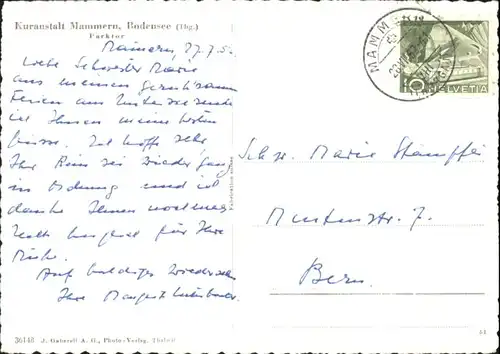 Kuranstalt Mammern, Bodensee (Thg.)
Parktor
Mammern, 27.7.52
Liebe Schwester Marie
aus meinen geruhsamen
Ferien am Untersee sende
ich Ihnen meine besten
Grüsse. Ich hoffe sehr
Ihr Knie sei wieder ganz
in Ordnung und ich
danke Ihnen nochmals
recht herzlich für Ihre
Mühe.
Auf baldiges Wiedersehen
Ihre Margrit
36148 J. Gaberell A. G., Photo-Verlag, Thalwil
MAMMERN
10 HELVETIA
Schw. Marie Stämpfli
Muntenstr. 7.
Bern.